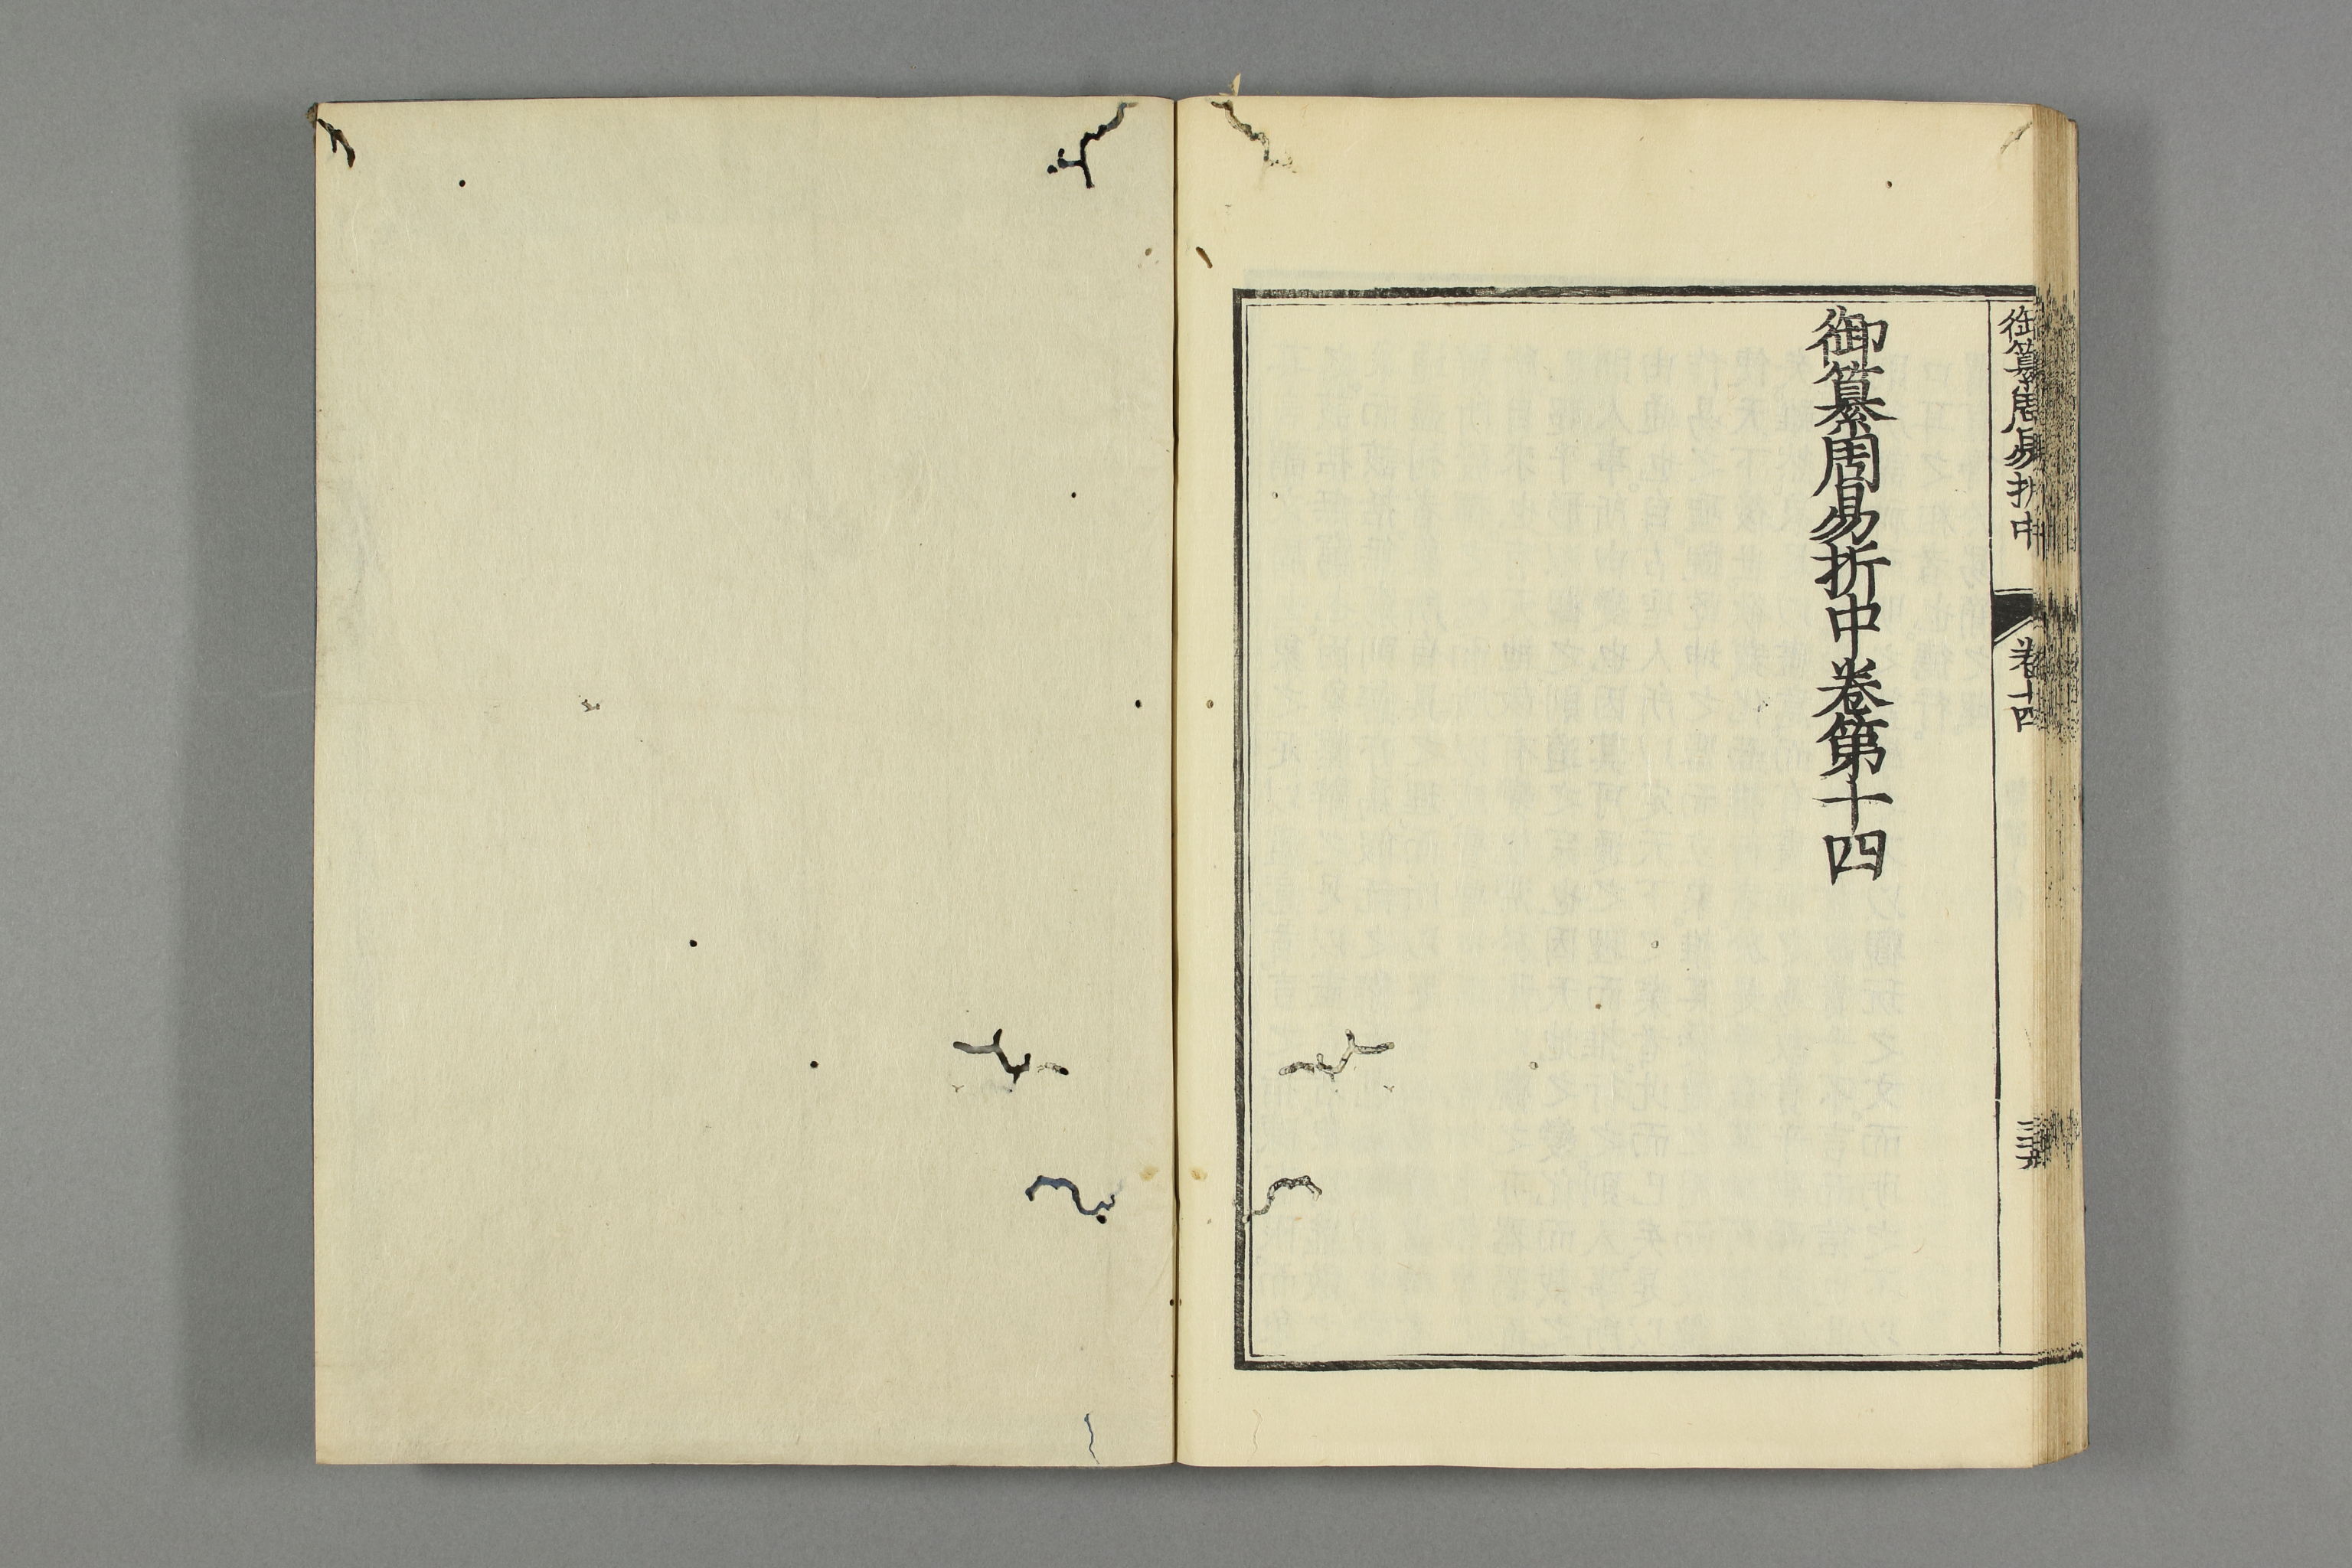 御纂周易折中卷第十四
御纂周易折中
卷十四